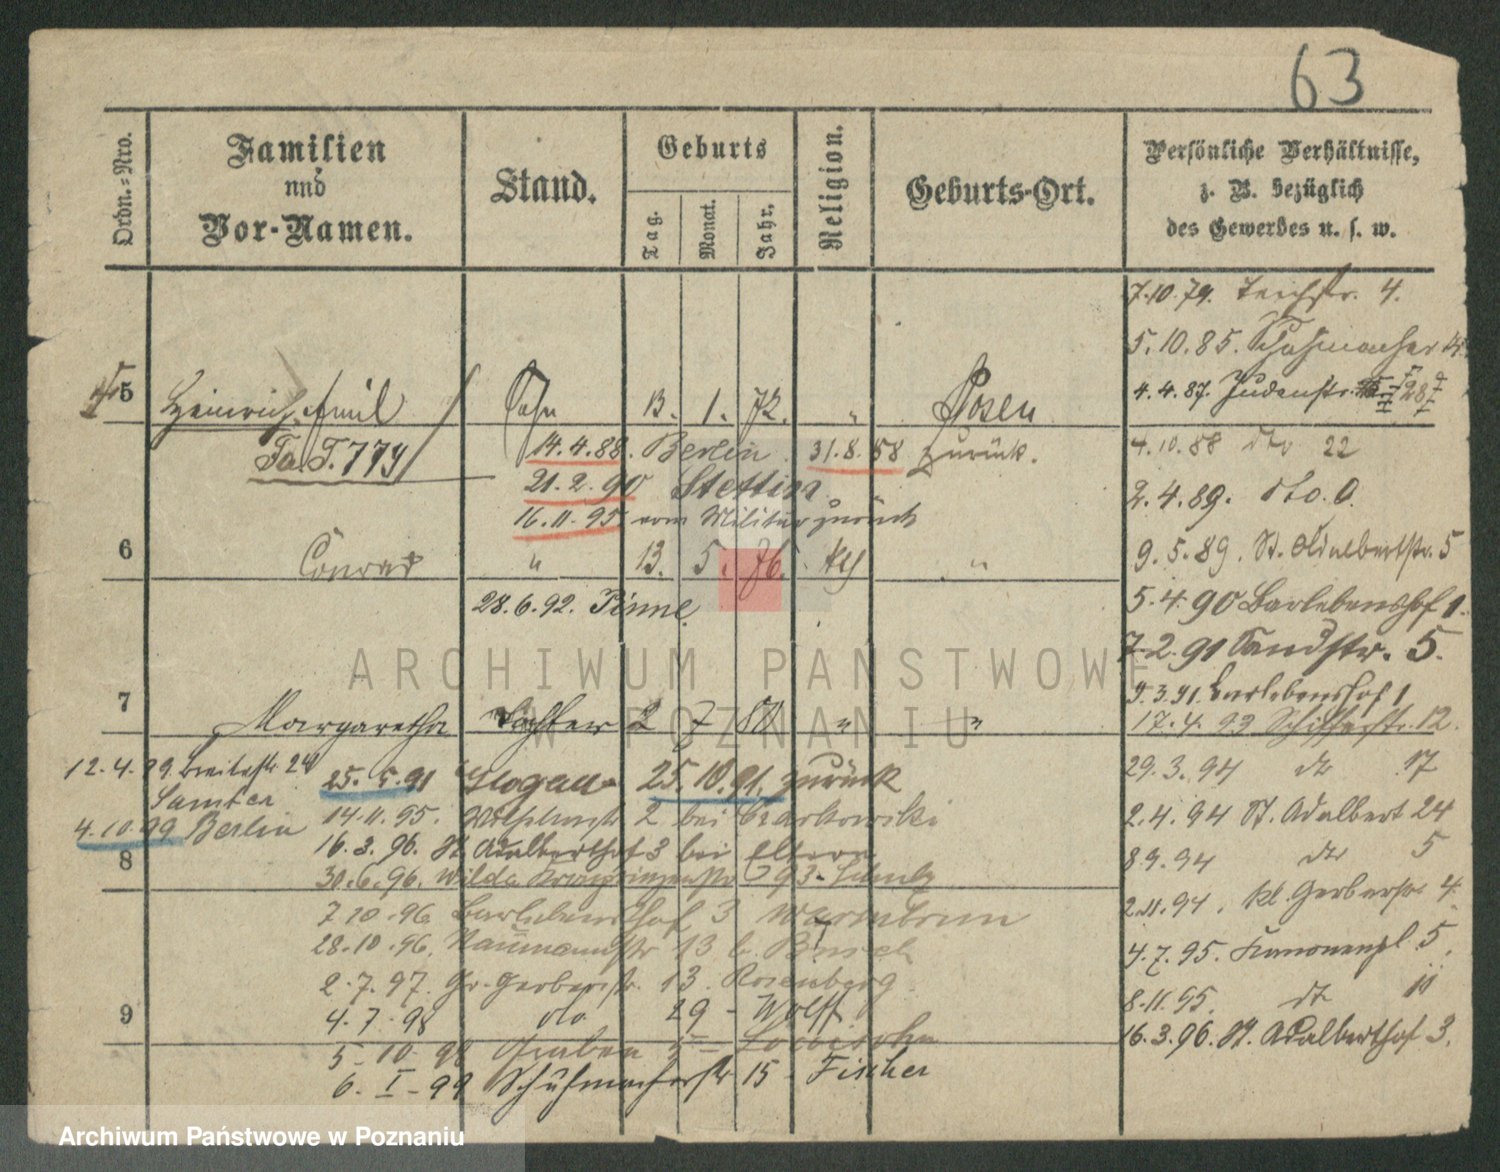 63
Ordn.=Nro.
Familien
und
Vor-Namen.
Stand.
Geburts
Tag.
Monat.
Jahr.
Religion.
Geburts-Ort.
Persönliche Verhältnisse,
z. B. bezüglich
des Gewerbes u. s. w.
5
Heinrich Emil
Sohn 13. 1. 72. " Posen
14.4.88. Berlin 31.8.88 zurück.
21.2.90 Stettin
16.11.95 vom Militär zurück
6
Conrad " 13. 5. 76. "
28.6.92. Pinne
7
Margaretha Tochter 2 7 80 " "
12.4.99. Breitestr. 24
Samter
4.10.99 Berlin
25.5.91 Glogau 25.10.91. zurück
14.11.95. 2 bei Czarkowski
16.3.96. St. Adalberthof 3 bei Eltern
8
30.6.96. Wilda Kronprinzenstr 93. Schulz
7.10.96 Barlebenshof 3 Warmbrunn
28.10.96. Naumannstr 13 b.
2.7.97. Gr. Gerberstr. 13. Rosenberg
9
4.7.98 dto 29 - Wolff
5-10-98 Graben 5 -
6. I-99 Schuhmacherstr 15 - Fischer
7.10.79. Teichstr. 4.
5.10.85. Schuhmacher
4.4.87. Judenstr. 28
4.10.88 dto 22
2.4.89. dto.
9.5.89. St. Adalbertstr. 5
5.4.90 Barlebenshof 1.
7.2.91 Sandstr. 5.
5.3.91. Barlebenshof 1
17.4.93 Schifferstr. 12.
29.3.94 do 17
2.4.94 St. Adalbert 24
8 9.94 do 5
2.11.94. Kl. Gerberstr. 4.
4.7.95. Kanonenpl. 5.
8.11.95. do 11
16.3.96. St. Adalberthof 3.
ARCHIWUM PAŃSTWOWE
W POZNANIU
Archiwum Państwowe w Poznaniu